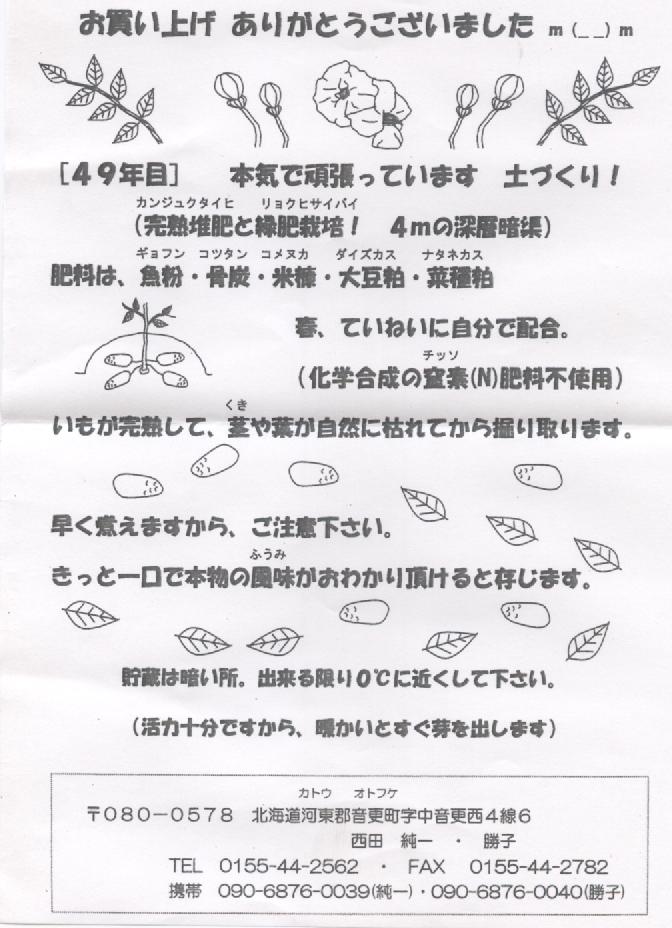 お買い上げ ありがとうございました m (_ _) m
［49年目］ 本気で頑張っています 土づくり！
カンジュクタイヒ リョクヒサイバイ
（完熟堆肥と緑肥栽培！ 4mの深層暗渠）
ギョフン コツタン コメヌカ ダイズカス ナタネカス
肥料は、魚粉・骨炭・米糠・大豆粕・菜種粕
春、ていねいに自分で配合。
チッソ
（化学合成の窒素(N)肥料不使用）
くき
いもが完熟して、茎や葉が自然に枯れてから掘り取ります。
早く煮えますから、ご注意下さい。
ふうみ
きっと一口で本物の風味がおわかり頂けると存じます。
貯蔵は暗い所。出来る限り0℃に近くして下さい。
（活力十分ですから、暖かいとすぐ芽を出します）
カトウ オトフケ
〒080－0578 北海道河東郡音更町字中音更西4線6
西田 純一 ・ 勝子
TEL 0155-44-2562 ・ FAX 0155-44-2782
携帯 090-6876-0039(純一)・090-6876-0040(勝子)